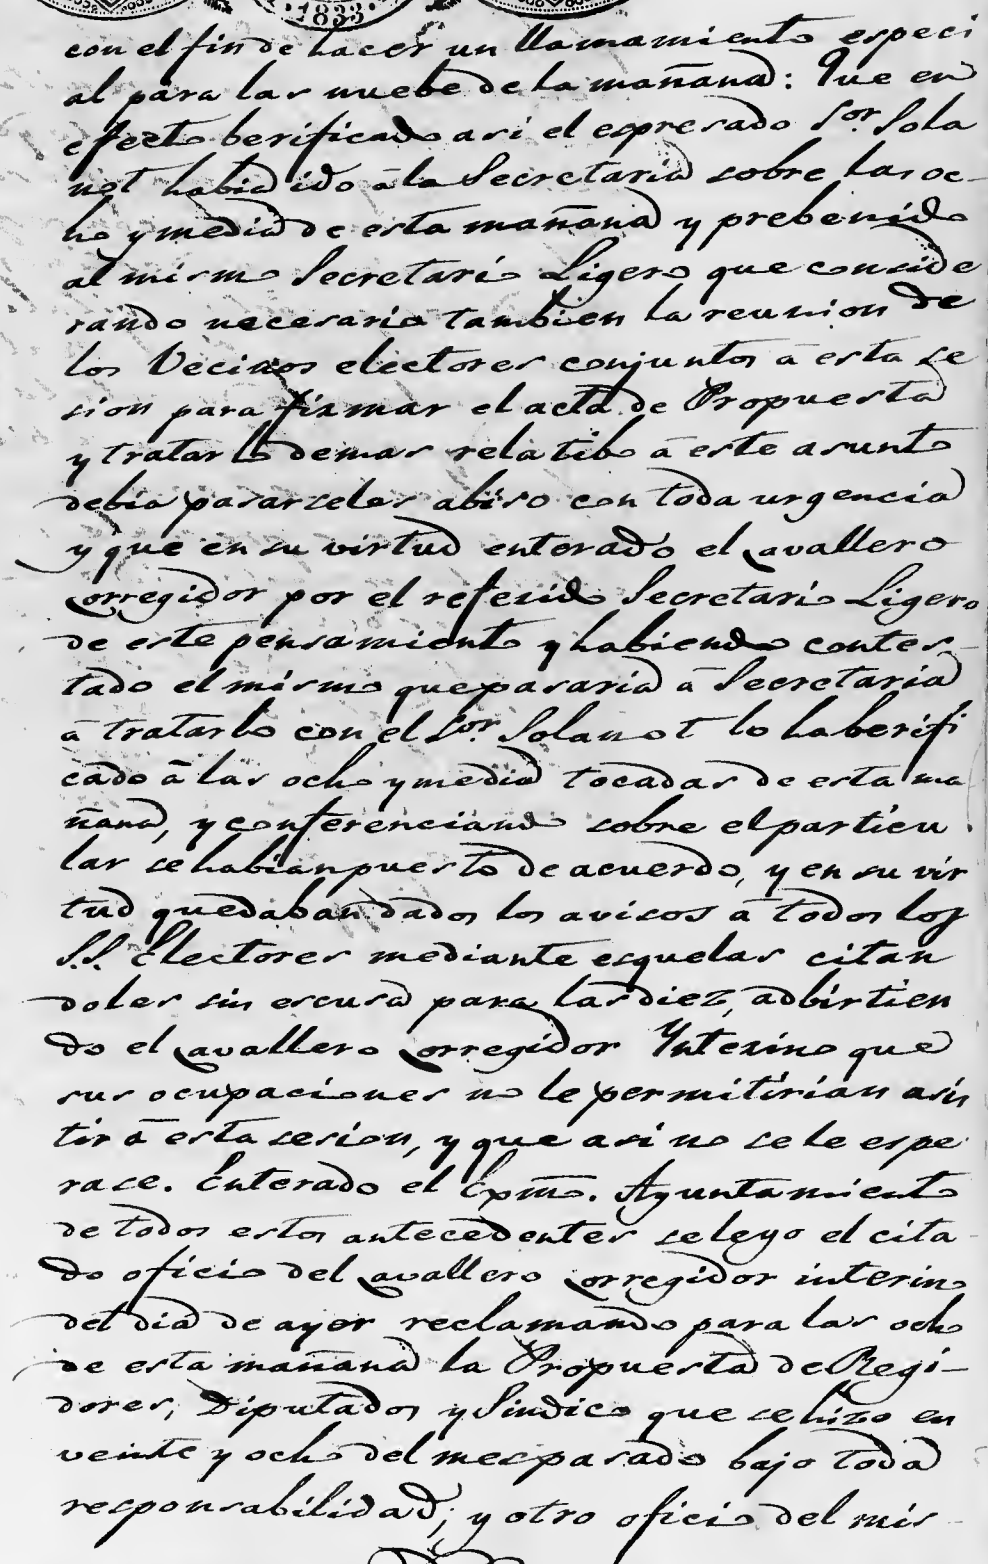 1833.
con el fin de hacer un llamamiento especi
al para las nuebe de la mañana: Que en
efecto berificado asi el espresado Sor. Sola
not habia ido â la Secretaria sobre las oc-
ho y media de esta mañana y prebenido
al mismo Secretario Ligero que conside
rando necesario tambien la reunion de
los Vecinos electores conjuntos â esta se
sion para firmar el acta de Propuesta
y tratar lo demas relatibo â este asunto
debia pasarseles abiso con toda urgencia
y que en su virtud enterado el cavallero
corregidor por el referido Secretario Ligero
de este pensamiento y habiendo contes-
tado el mismo que pasaria â Secretaria
â tratarlo con el Sor. Solanot lo ha berifi
cado â las ocho y media tocadas de esta ma
ñana, y conferenciando sobre el particu
lar se habian puesto de acuerdo, y en su vir
tud quedaban dados los avisos â todos los
S.S. Electores mediante esquelas citan
doles sin escusa para las diez, adbirtien
do el cavallero corregidor Ynterino que
sus ocupaciones no le permitirian asis
tir â esta sesion, y que asi no se le espe
rase. Enterado el Exmō. Ayuntamiento
de todos estos antecedentes se leyo el cita
do oficio del cavallero corregidor interino
del dia de ayer reclamando para las ocho
de esta mañana la Propuesta de Regi-
dores, Diputados y Sindico que se hizo en
veinte y ocho del mes pasado bajo toda
responsabilidad; y otro oficio del mis-